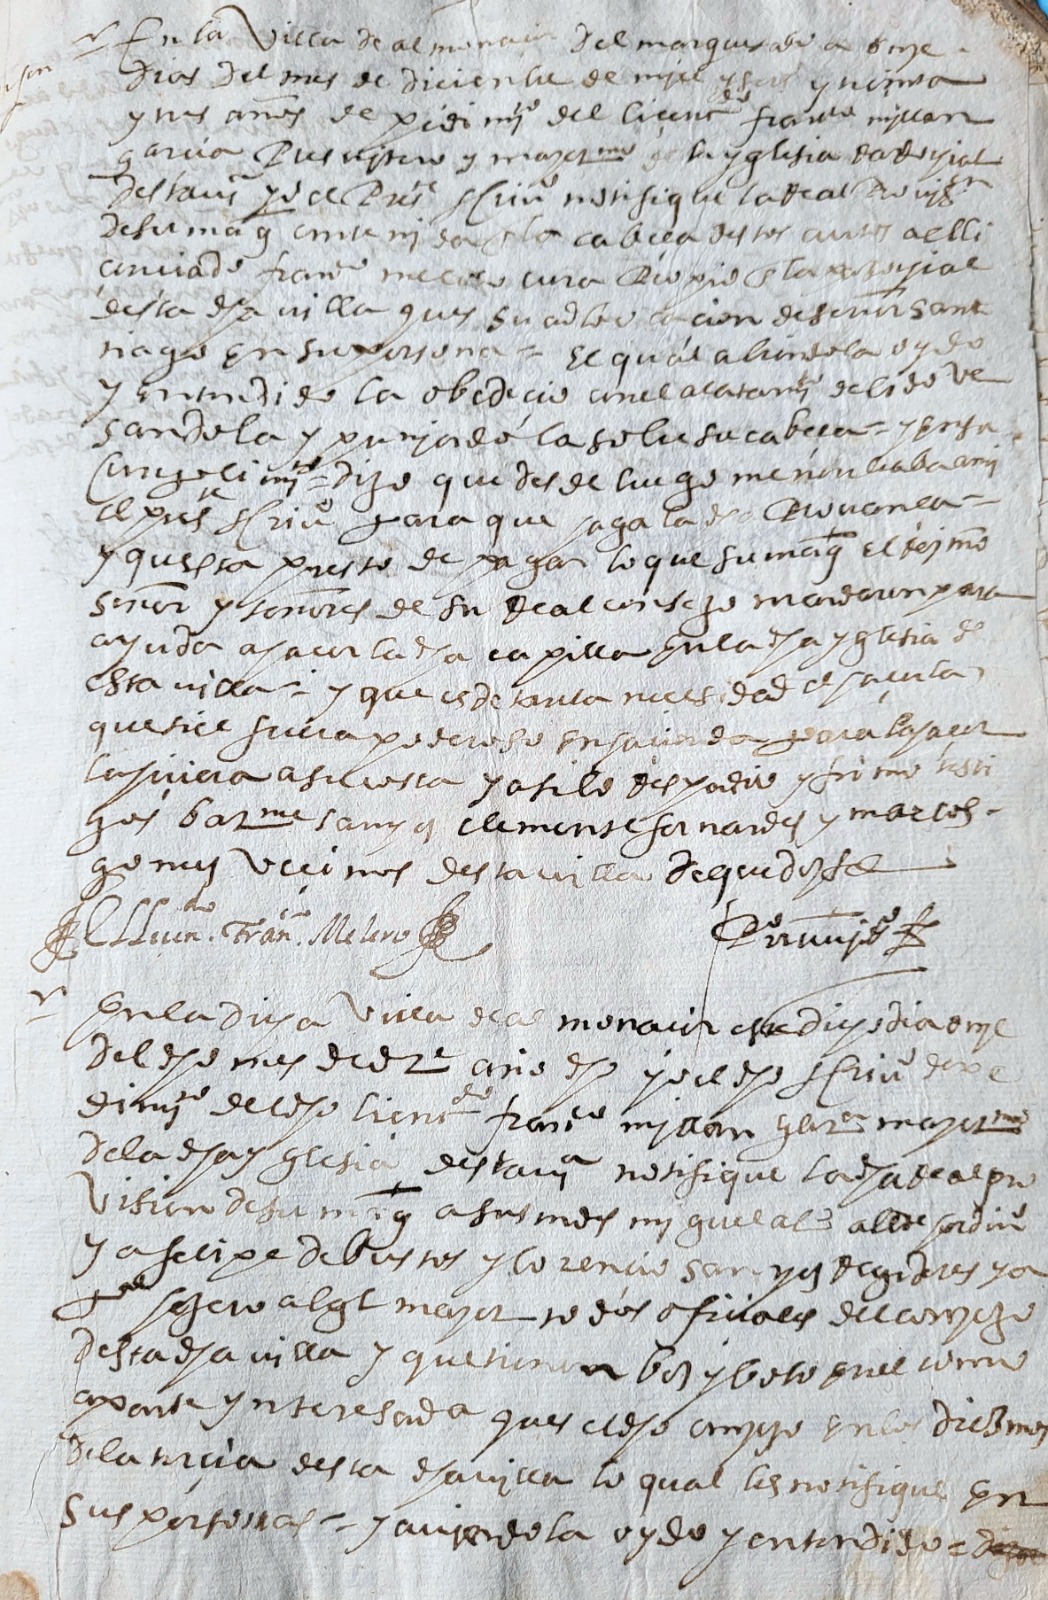 En la Villa de almonacir del marquesado a onze
dias del mes de diciembre de mjll y seis y noventa
y tres años de pedimjº del licençdº franco mjllan
garcia Presvitero y mayormo de la yglesia parroquial
desta vª yo el Presᵗᵉ Scrivº notifique la Real Provisⁿ
de su magᵈ contenida en la cabeça destos autos al li
cenciado franᶜº melero cura Propio de la parroquial
desta dha villa ques su advocacion de señor Sant
tiago en su persona = El qual abiendola oydo
y entendido la obedecio con el acatamiº devido ve
sandola y punjendola sobre su cabeça = y en su
cunplimjº = dixo que desde luego me nonbraba a mj
el presᵗᵉ scrivº para que haga la dha Provança =
y questa presto de pagar lo que su magᵈ el Rey nrº
señor y señores de su Real consejo mandaren para
ayuda a hacer la dha capilla en la dha yglesia de
esta villa = y que es de tanta necesidad el hacerla
que si el fuera poderoso en hacienda para la hacer
la hiciera a su costa y asi lo respondio y firmo testi
gos barᵐᵉ sanz clemente fernandez y marcos
gomez Vecinos desta villa de que doy fee
El Licendº. Franᶜº. Melero
en la dicha Villa de almonacir este dicho dia onze
del dho mes de dizᵉ año dho yo el dho scrivº de pe
dimjº del dho licençdº franᶜº mjllan garᶜª mayormo
de la dha yglesia desta vª notifique la dha Real pro
Vision de su magᵈ a sus mds miguel alº allde hordinº
y a felipe de bustos y lorencio sanz Regidores y a
alguacil mayor todos oficiales del conzejo
desta dha villa y que tienen boz y boto en el como
aparte ynteresada ques el dho conzejo en los diezmos
de la tercia desta dha villa lo qual les notifique en
sus personas = y aviendola oydo y entendido =